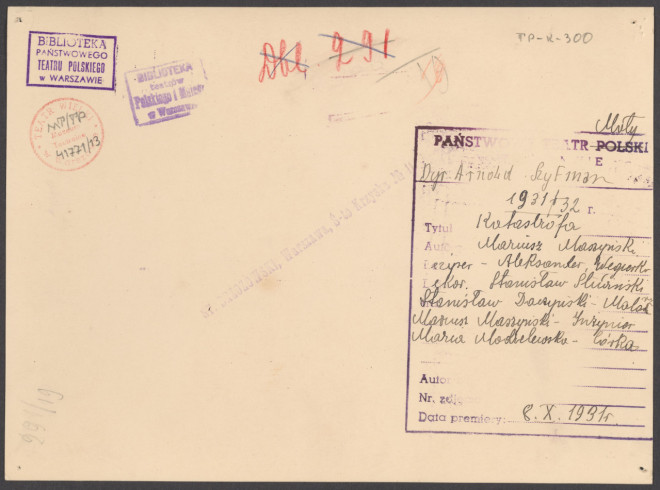 BIBLIOTEKA
PAŃSTWOWEGO
TEATRU POLSKIEGO
w WARSZAWIE
BIBLIOTEKA
Teatrów
Polskiego i
w Warszawie
TEATR WIELKI
MP/990
41771/13
Dbl. 291
TP-K-300
Mały
PAŃSTWOWY TEATR POLSKI
Dyr. Arnold Szyfman
1931/32 r.
Tytuł Katastrofa
Autor Mariusz Maszyński
Reżyser - Aleksander Węgierko
Dekor. Stanisław Śliwiński
Stanisław Daczyński - Malarz
Mariusz Maszyński - Inżynier
Maria Modzelewska - Córka
Autor
Nr. zdjęcia
Data premiery: 8. X. 1931 r.
Warszawa,
291/19